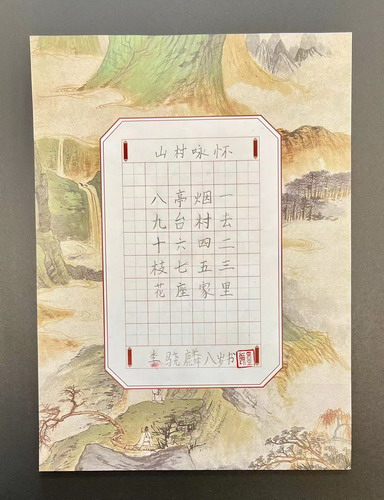 山村咏怀
一去二三里
烟村四五家
亭台六七座
八九十枝花
李骁麟八岁书